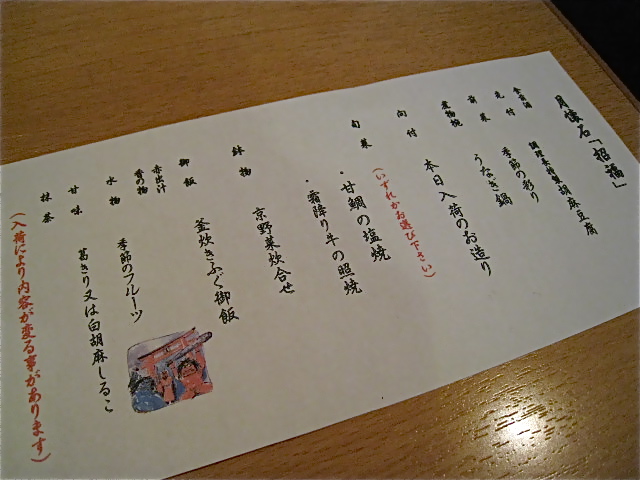 月懐石「招福」
食前酒
先付 調理長特製胡麻豆腐
前菜 季節の彩り
煮物椀 うなぎ鍋
向付 本日入荷のお造り
旬菜 (いずれかお選び下さい)
・甘鯛の塩焼
・霜降り牛の照焼
鉢物 京野菜炊合せ
御飯 釜炊きふぐ御飯
赤出汁
香の物
水物 季節のフルーツ
甘味 葛きり又は白胡麻しるこ
抹茶
(入荷により内容が変る事があります)